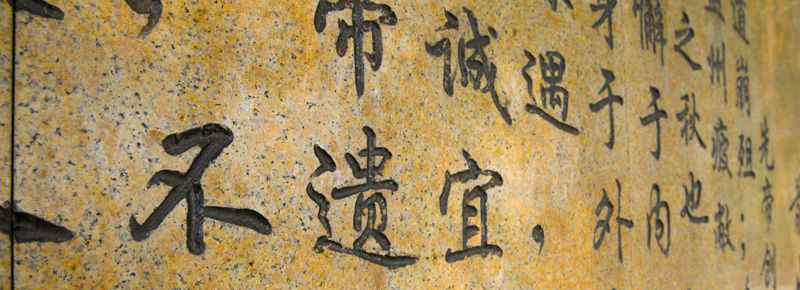 先帝创
道崩殂;
州疲敝
之秋也
懈于内
身于外
遇,
诚宜
帝遗
不